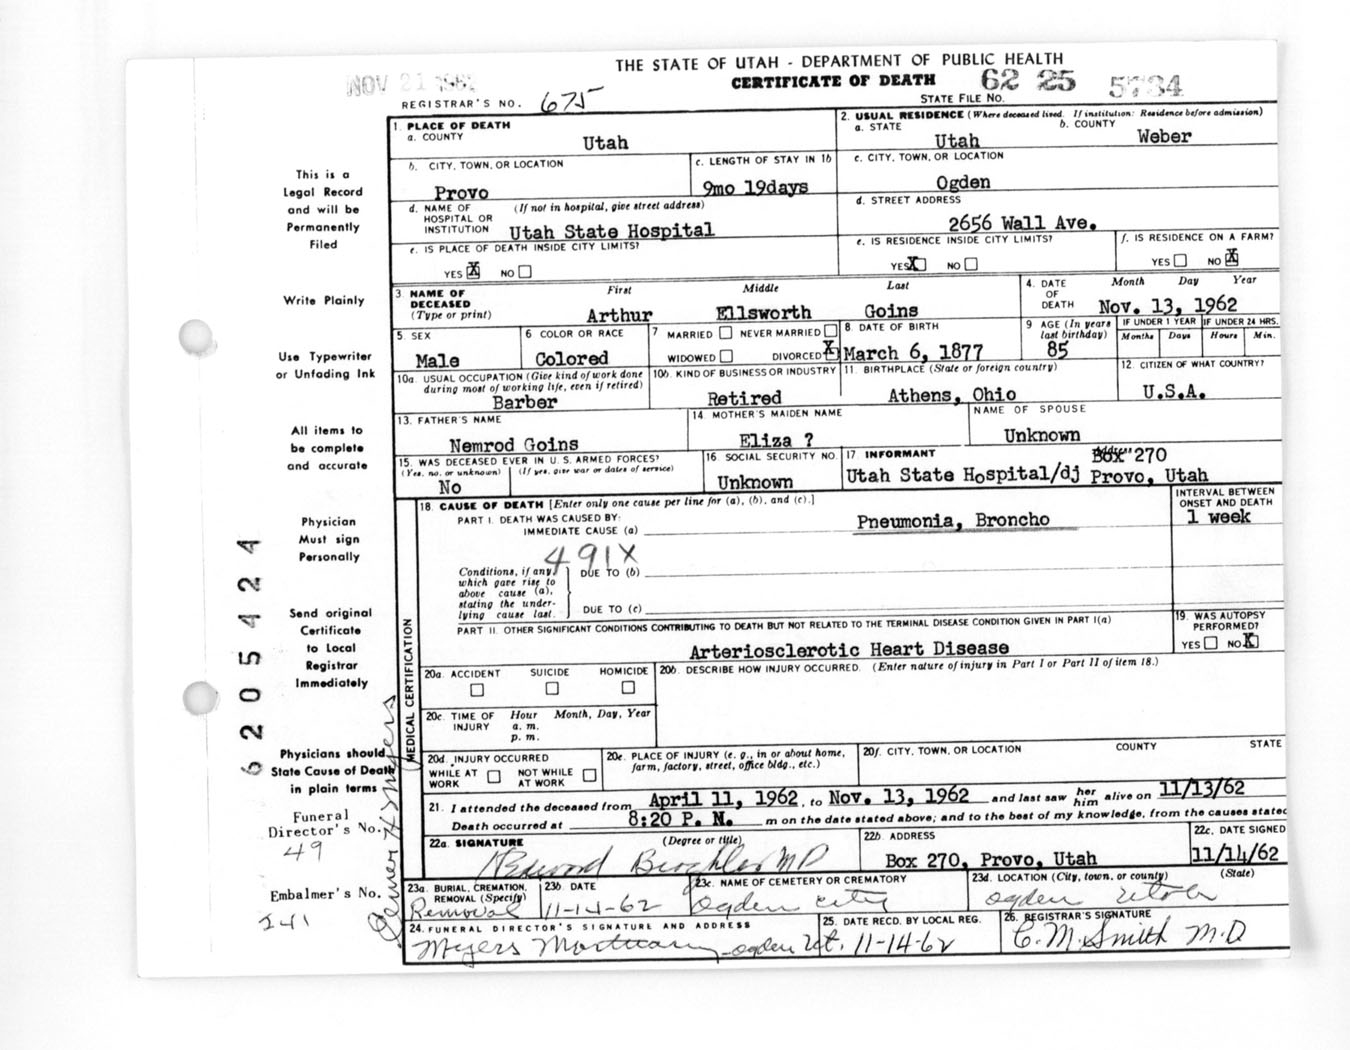 THE STATE OF UTAH - DEPARTMENT OF PUBLIC HEALTH
NOV 21 1962
CERTIFICATE OF DEATH 62 25 5734
REGISTRAR'S NO. 675
STATE FILE NO.
1. PLACE OF DEATH
a. COUNTY
Utah
2. USUAL RESIDENCE (Where deceased lived. If institution: Residence before admission)
a. STATE
Utah
b. COUNTY
Weber
b. CITY, TOWN, OR LOCATION
Provo
c. LENGTH OF STAY IN 1b
9mo 19days
c. CITY, TOWN, OR LOCATION
Ogden
d. NAME OF HOSPITAL OR INSTITUTION (If not in hospital, give street address)
Utah State Hospital
d. STREET ADDRESS
2656 Wall Ave.
e. IS PLACE OF DEATH INSIDE CITY LIMITS?
YES X NO
e. IS RESIDENCE INSIDE CITY LIMITS?
YES X NO
f. IS RESIDENCE ON A FARM?
YES NO X
3. NAME OF DECEASED (Type or print)
First Middle Last
Arthur Ellsworth Goins
4. DATE OF DEATH
Month Day Year
Nov. 13, 1962
5. SEX
Male
6 COLOR OR RACE
Colored
7 MARRIED NEVER MARRIED
WIDOWED DIVORCED X
8. DATE OF BIRTH
March 6, 1877
9 AGE (In years last birthday)
85
IF UNDER 1 YEAR
Months Days
IF UNDER 24 HRS.
Hours Min.
10a. USUAL OCCUPATION (Give kind of work done during most of working life, even if retired)
Barber
10b. KIND OF BUSINESS OR INDUSTRY
Retired
11. BIRTHPLACE (State or foreign country)
Athens, Ohio
12. CITIZEN OF WHAT COUNTRY?
U.S.A.
13. FATHER'S NAME
Nemrod Goins
14 MOTHER'S MAIDEN NAME
Eliza ?
NAME OF SPOUSE
Unknown
15. WAS DECEASED EVER IN U. S. ARMED FORCES?
(Yes, no, or unknown) (If yes, give war or dates of service)
No
16 SOCIAL SECURITY NO.
Unknown
17. INFORMANT
Box 270
Utah State Hospital/dj Provo, Utah
18. CAUSE OF DEATH [Enter only one cause per line for (a), (b), and (c).]
INTERVAL BETWEEN ONSET AND DEATH
PART I. DEATH WAS CAUSED BY:
IMMEDIATE CAUSE (a) Pneumonia, Broncho
1 week
491X
Conditions, if any, which gave rise to above cause (a), stating the underlying cause last.
DUE TO (b)
DUE TO (c)
PART II. OTHER SIGNIFICANT CONDITIONS CONTRIBUTING TO DEATH BUT NOT RELATED TO THE TERMINAL DISEASE CONDITION GIVEN IN PART I(a)
Arteriosclerotic Heart Disease
19. WAS AUTOPSY PERFORMED?
YES NO X
20a. ACCIDENT SUICIDE HOMICIDE
20b. DESCRIBE HOW INJURY OCCURRED. (Enter nature of injury in Part I or Part II of item 18.)
20c. TIME OF INJURY
Hour Month, Day, Year
a. m.
p. m.
20d. INJURY OCCURRED
WHILE AT WORK NOT WHILE AT WORK
20e. PLACE OF INJURY (e. g., in or about home, farm, factory, street, office bldg., etc.)
20f. CITY, TOWN, OR LOCATION COUNTY STATE
21. I attended the deceased from April 11, 1962, to Nov. 13, 1962 and last saw her him alive on 11/13/62
Death occurred at 8:20 P. M. m on the date stated above; and to the best of my knowledge, from the causes stated
22a. SIGNATURE (Degree or title)
MD
22b. ADDRESS
Box 270, Provo, Utah
22c. DATE SIGNED
11/14/62
23a. BURIAL, CREMATION, REMOVAL (Specify)
Removal
23b. DATE
11-14-62
23c. NAME OF CEMETERY OR CREMATORY
Ogden City
23d. LOCATION (City, town, or county) (State)
Ogden Utah
24. FUNERAL DIRECTOR'S SIGNATURE AND ADDRESS
Myers Mortuary - Ogden Ut.
25. DATE RECD. BY LOCAL REG.
11-14-62
26. REGISTRAR'S SIGNATURE
C. M. Smith M.D
MEDICAL CERTIFICATION
This is a
Legal Record
and will be
Permanently
Filed
Write Plainly
Use Typewriter
or Unfading Ink
All items to
be complete
and accurate
Physician
Must sign
Personally
Send original
Certificate
to Local
Registrar
Immediately
Physicians should
State Cause of Death
in plain terms
Funeral
Director's No.
49
Embalmer's No.
241
6205424
Myers